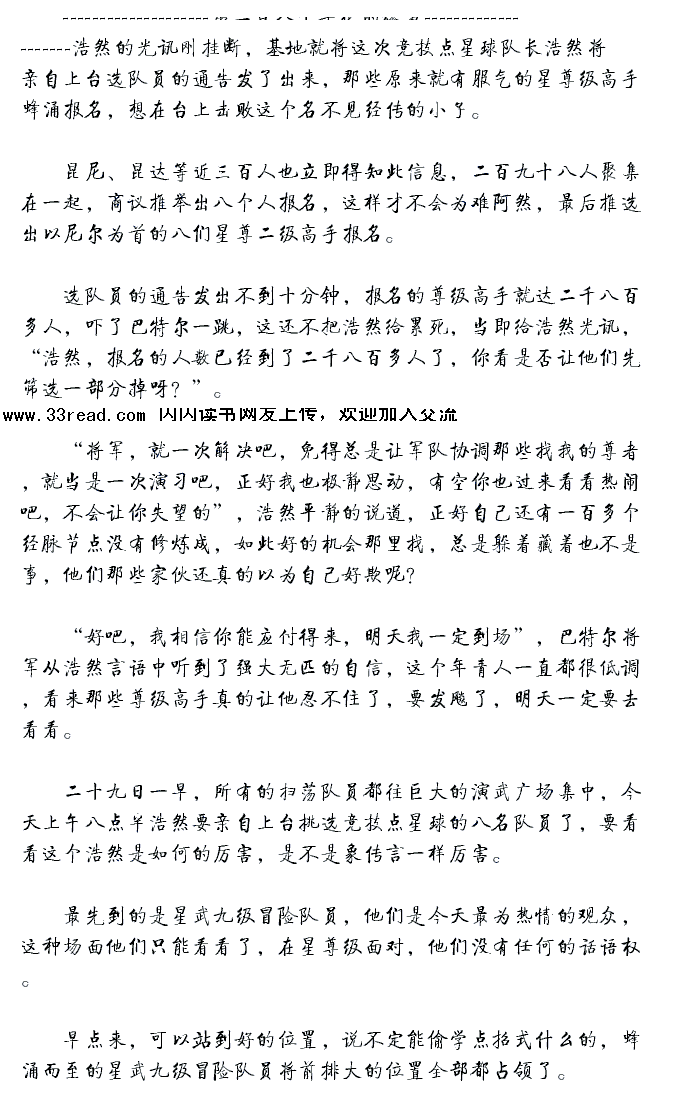 -------浩然的光讯刚挂断，基地就将这次竞技点星球队长浩然将
亲自上台选队员的通告发了出来，那些原来就有服气的星尊级高手
蜂涌报名，想在台上击败这个名不见经传的小子。
昆尼、昆达等近三百人也立即得知此信息，二百九十八人聚集
在一起，商议推举出八个人报名，这样才不会为难阿然，最后推选
出以尼尔为首的八们星尊二级高手报名。
选队员的通告发出不到十分钟，报名的尊级高手就达二千八百
多人，吓了巴特尔一跳，这还不把浩然给累死，当即给浩然光讯，
“浩然，报名的人数已经到了二千八百多人了，你看是否让他们先
筛选一部分掉呀？”。
www.33read.com 闪闪读书网友上传，欢迎加入交流
“将军，就一次解决吧，免得总是让军队协调那些找我的尊者
，就当是一次演习吧，正好我也极静思动，有空你也过来看看热闹
吧，不会让你失望的”，浩然平静的说道，正好自己还有一百多个
经脉节点没有修炼成，如此好的机会那里找，总是躲着藏着也不是
事，他们那些家伙还真的以为自己好欺呢？
“好吧，我相信你能应付得来，明天我一定到场”，巴特尔将
军从浩然言语中听到了强大无匹的自信，这个年青人一直都很低调
，看来那些尊级高手真的让他忍不住了，要发飚了，明天一定要去
看看。
二十九日一早，所有的扫荡队员都往巨大的演武广场集中，今
天上午八点早浩然要亲自上台挑选竞技点星球的八名队员了，要看
看这个浩然是如何的厉害，是不是象传言一样厉害。
最先到的是星武九级冒险队员，他们是今天最为热情的观众，
这种场面他们只能看看了，在星尊级面对，他们没有任何的话语权
。
早点来，可以站到好的位置，说不定能偷学点招式什么的，蜂
涌而至的星武九级冒险队员将前排大的位置全部都占领了。